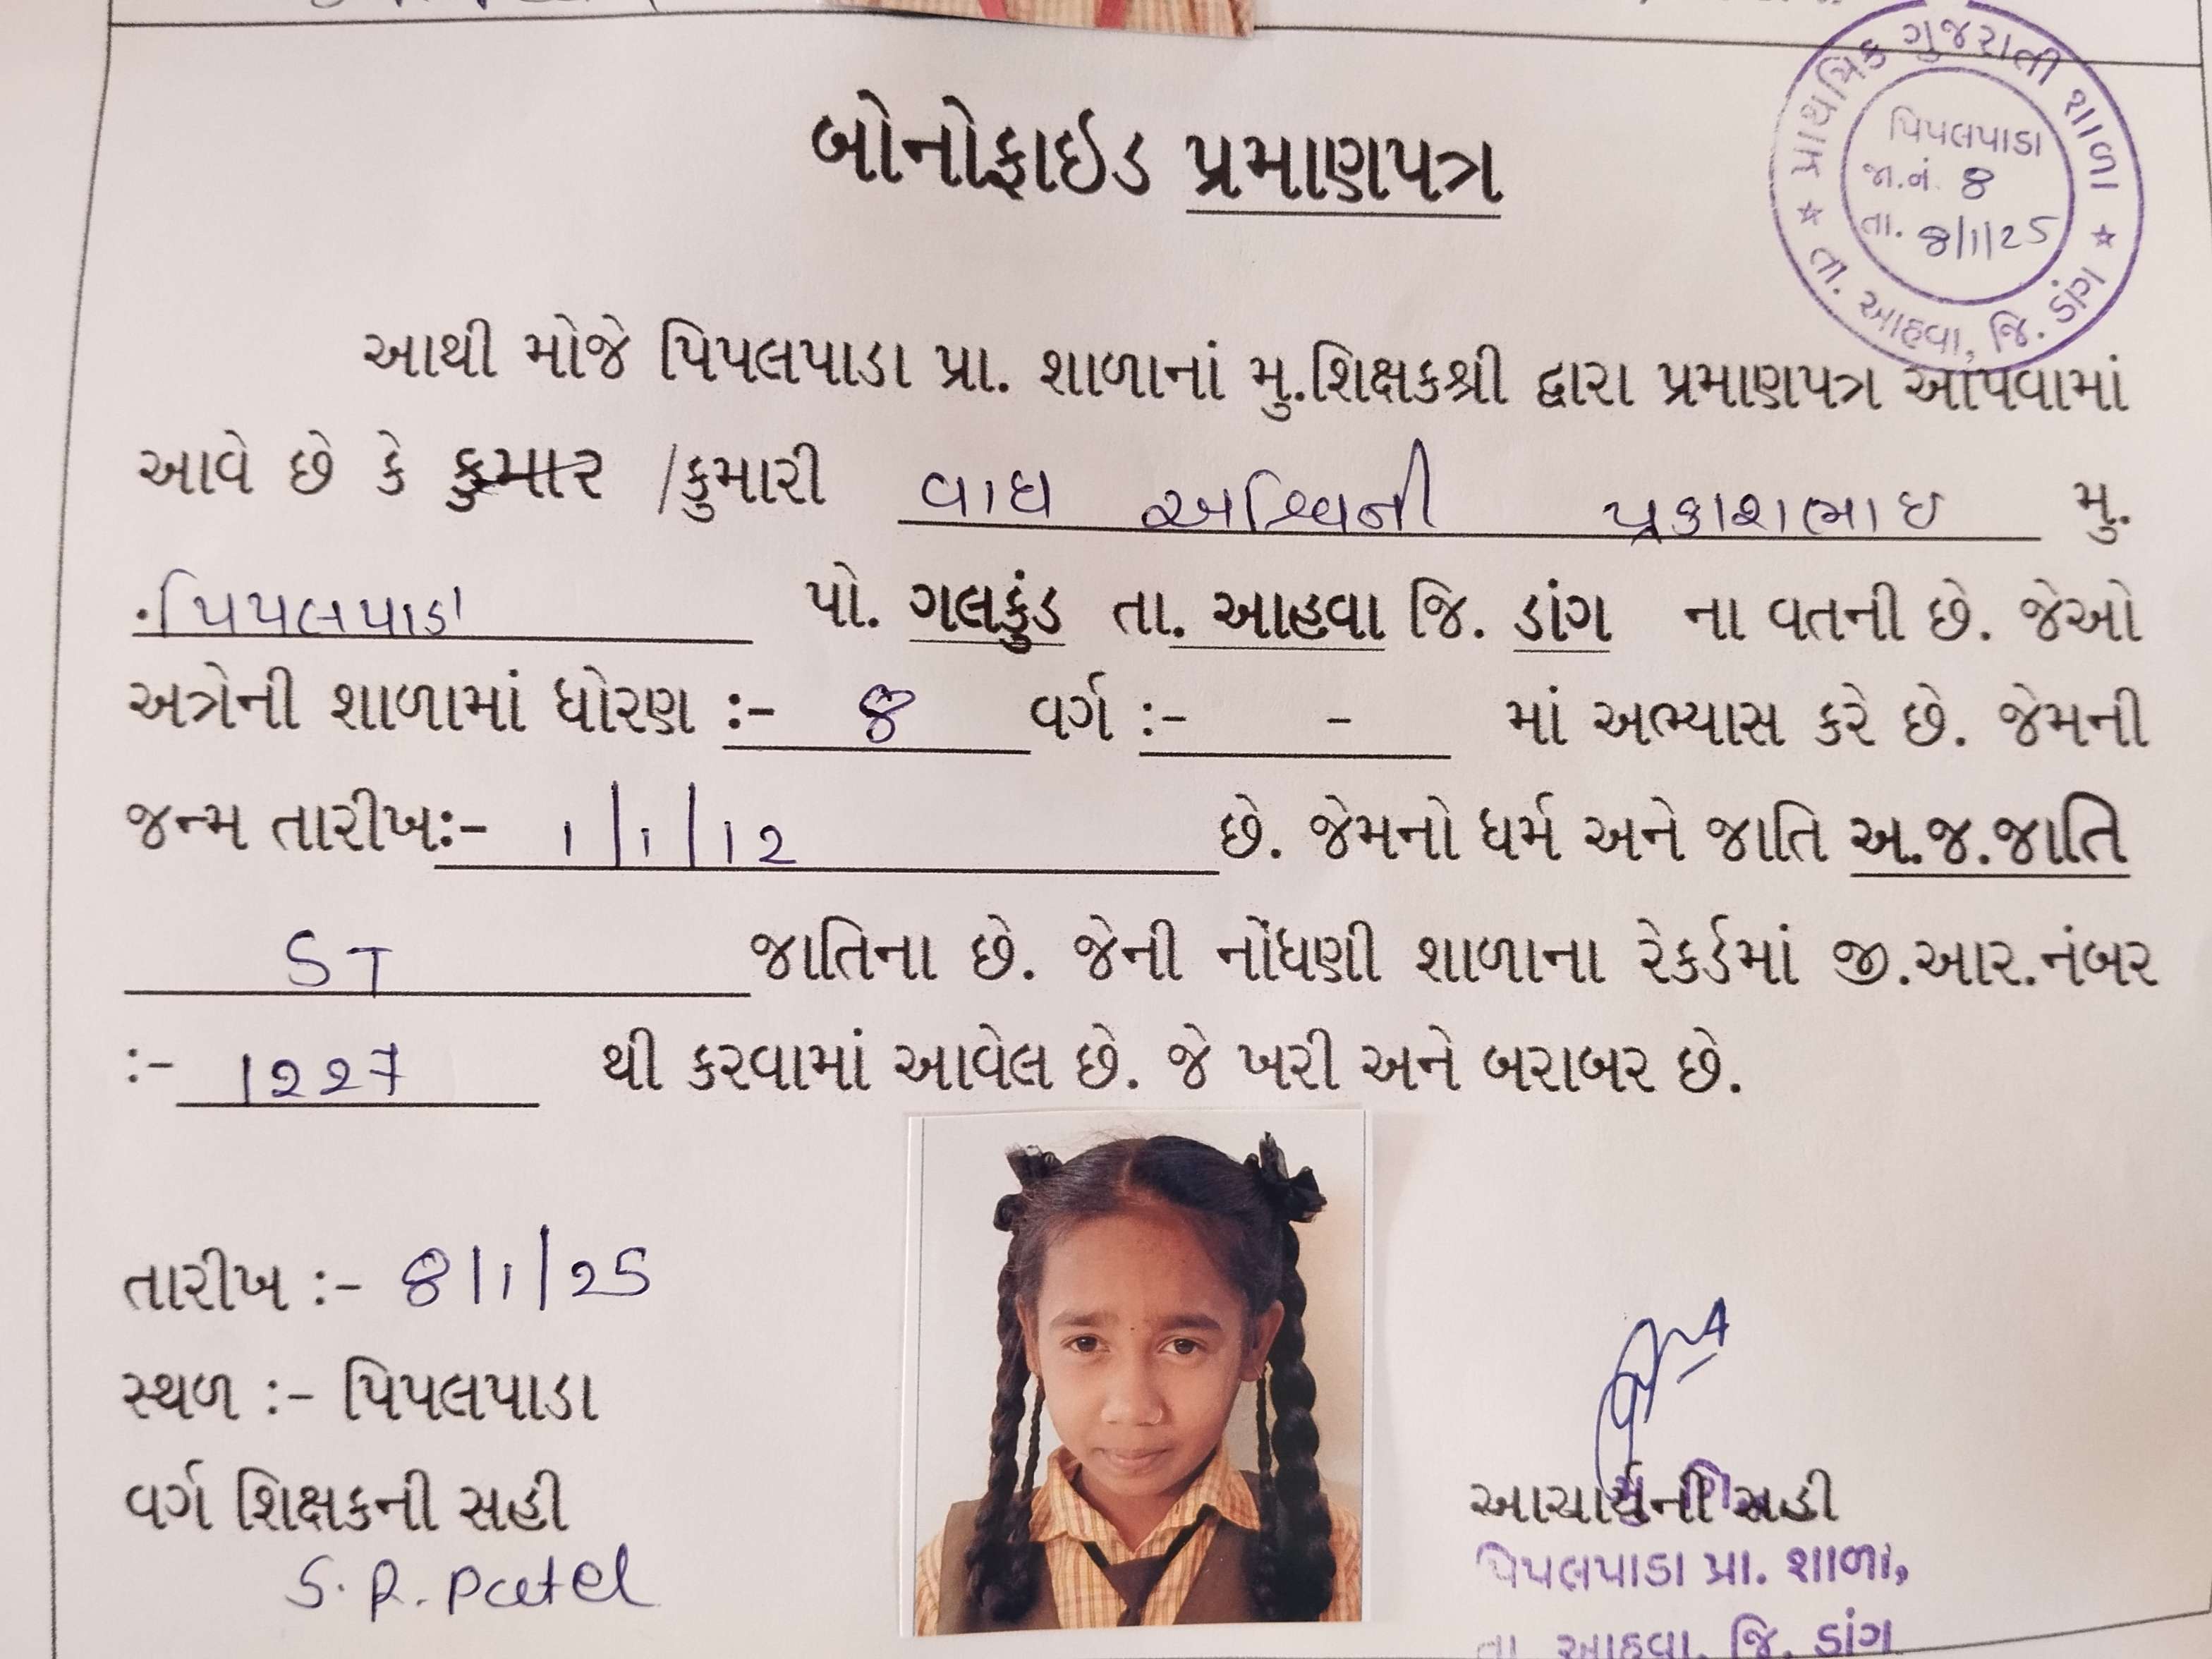 બોનોફાઇડ પ્રમાણપત્ર
પ્રાથમિક ગુજરાતી શાળા
પિપલપાડા
જા.નં. 8
તા. 8/1/25
★ તા. આહવા, જિ. ડાંગ ★
આથી મોજે પિપલપાડા પ્રા. શાળાનાં મુ.શિક્ષકશ્રી દ્વારા પ્રમાણપત્ર આપવામાં
આવે છે કે કુમાર /કુમારી વાઘ અશ્વિની પ્રકાશભાઇ મુ.
.પિપલપાડા પો. ગલકુંડ તા. આહવા જિ. ડાંગ ના વતની છે. જેઓ
અત્રેની શાળામાં ધોરણ :- 8 વર્ગ :- - માં અભ્યાસ કરે છે. જેમની
જન્મ તારીખ:- 1/1/12 છે. જેમનો ધર્મ અને જાતિ અ.જ.જાતિ
ST જાતિના છે. જેની નોંધણી શાળાના રેકર્ડમાં જી.આર.નંબર
:- 1227 થી કરવામાં આવેલ છે. જે ખરી અને બરાબર છે.
તારીખ :- 8/1/25
સ્થળ :- પિપલપાડા
વર્ગ શિક્ષકની સહી
S. R. Patel
આચાર્યની સહી
પિપલપાડા પ્રા. શાળા,
તા. આહવા. જિ. ડાંગ